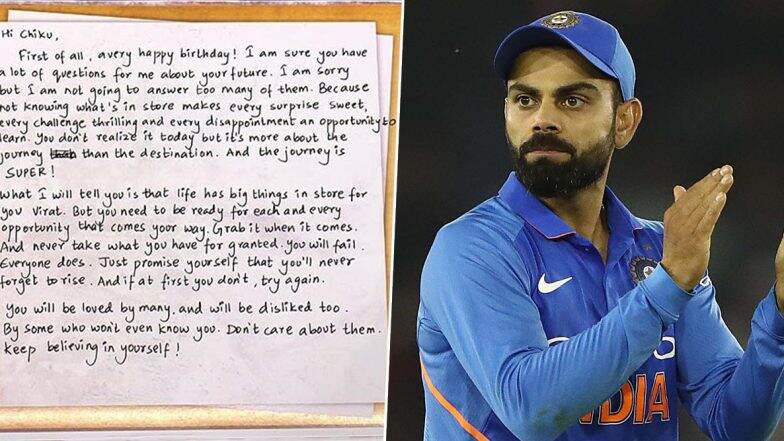 Hi Chiku,
First of all, a very happy birthday! I am sure you have
a lot of questions for me about your future. I am sorry
but I am not going to answer too many of them. Because
not knowing what's in store makes every surprise sweet,
every challenge thrilling and every disappointment an opportunity to
learn. You don't realize it today but it's more about the
journey than the destination. And the journey is
SUPER!
What I will tell you is that life has big things in store for
you Virat. But you need to be ready for each and every
opportunity that comes your way. Grab it when it comes.
And never take what you have for granted. You will fail.
Everyone does. Just promise yourself that you'll never
forget to rise. And if at first you don't, try again.
You will be loved by many, and will be disliked too.
By some who won't even know you. Don't care about them.
Keep believing in yourself!
INDIA